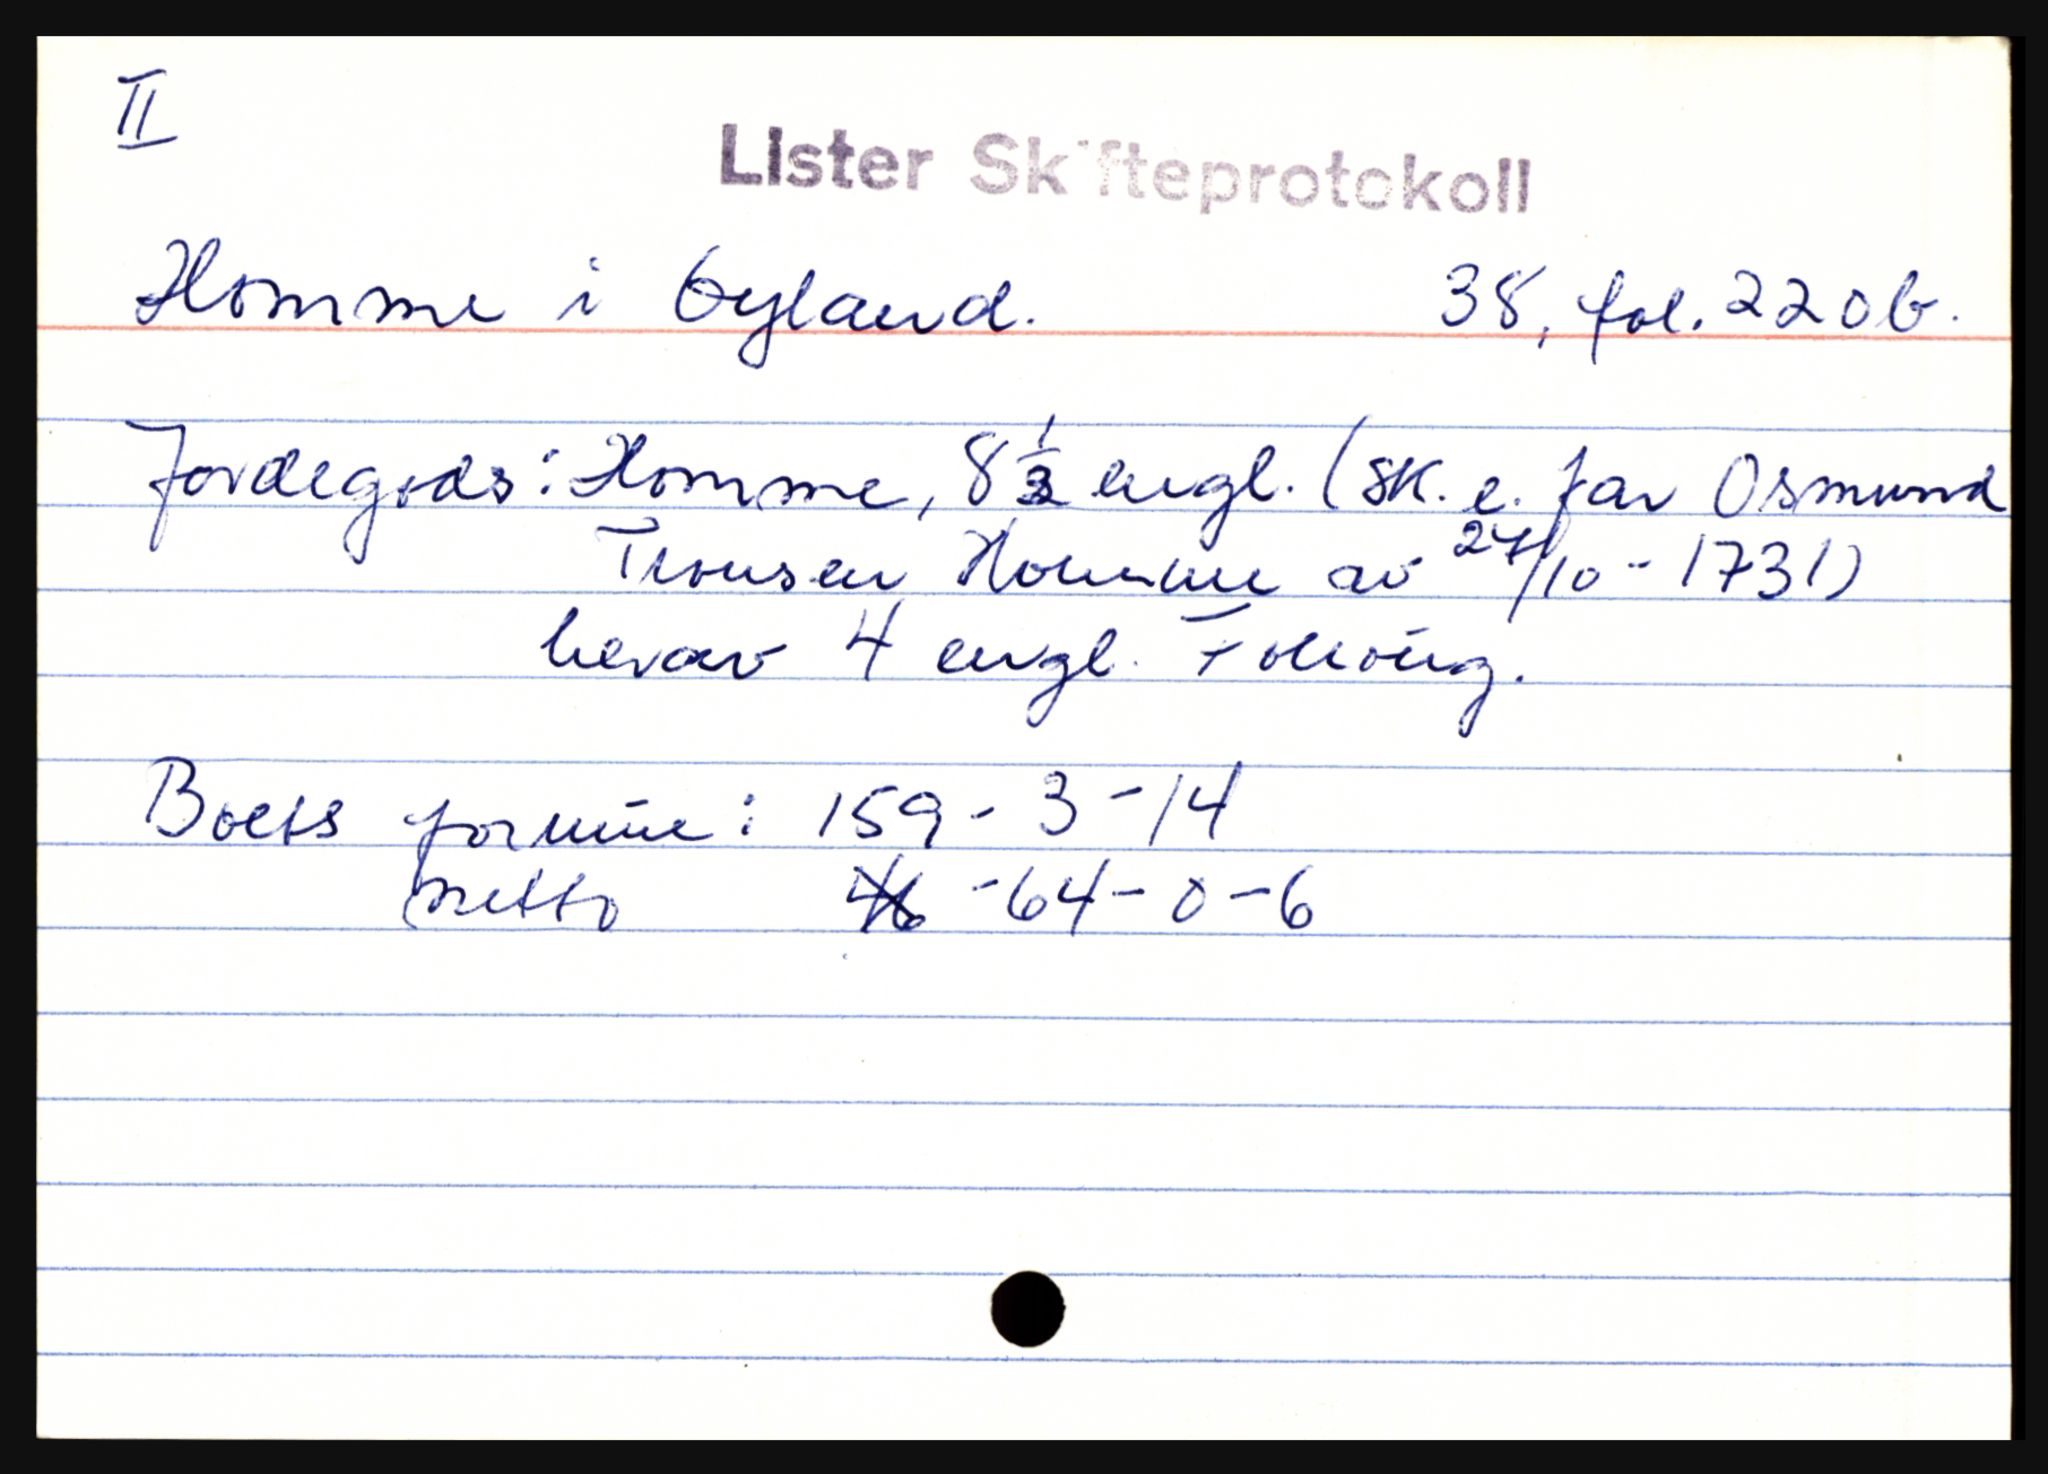 II
Lister Skifteprotokoll
Homme i Gyland. 38, fol. 220b.
Jordegods: Homme, 8 1/3 engl. (sk. e. far Osmund
Tronsen Homme av 24/10-1731)
herav 4 engl.
Boets formue: 159-3-14
netto 46 -64-0-6